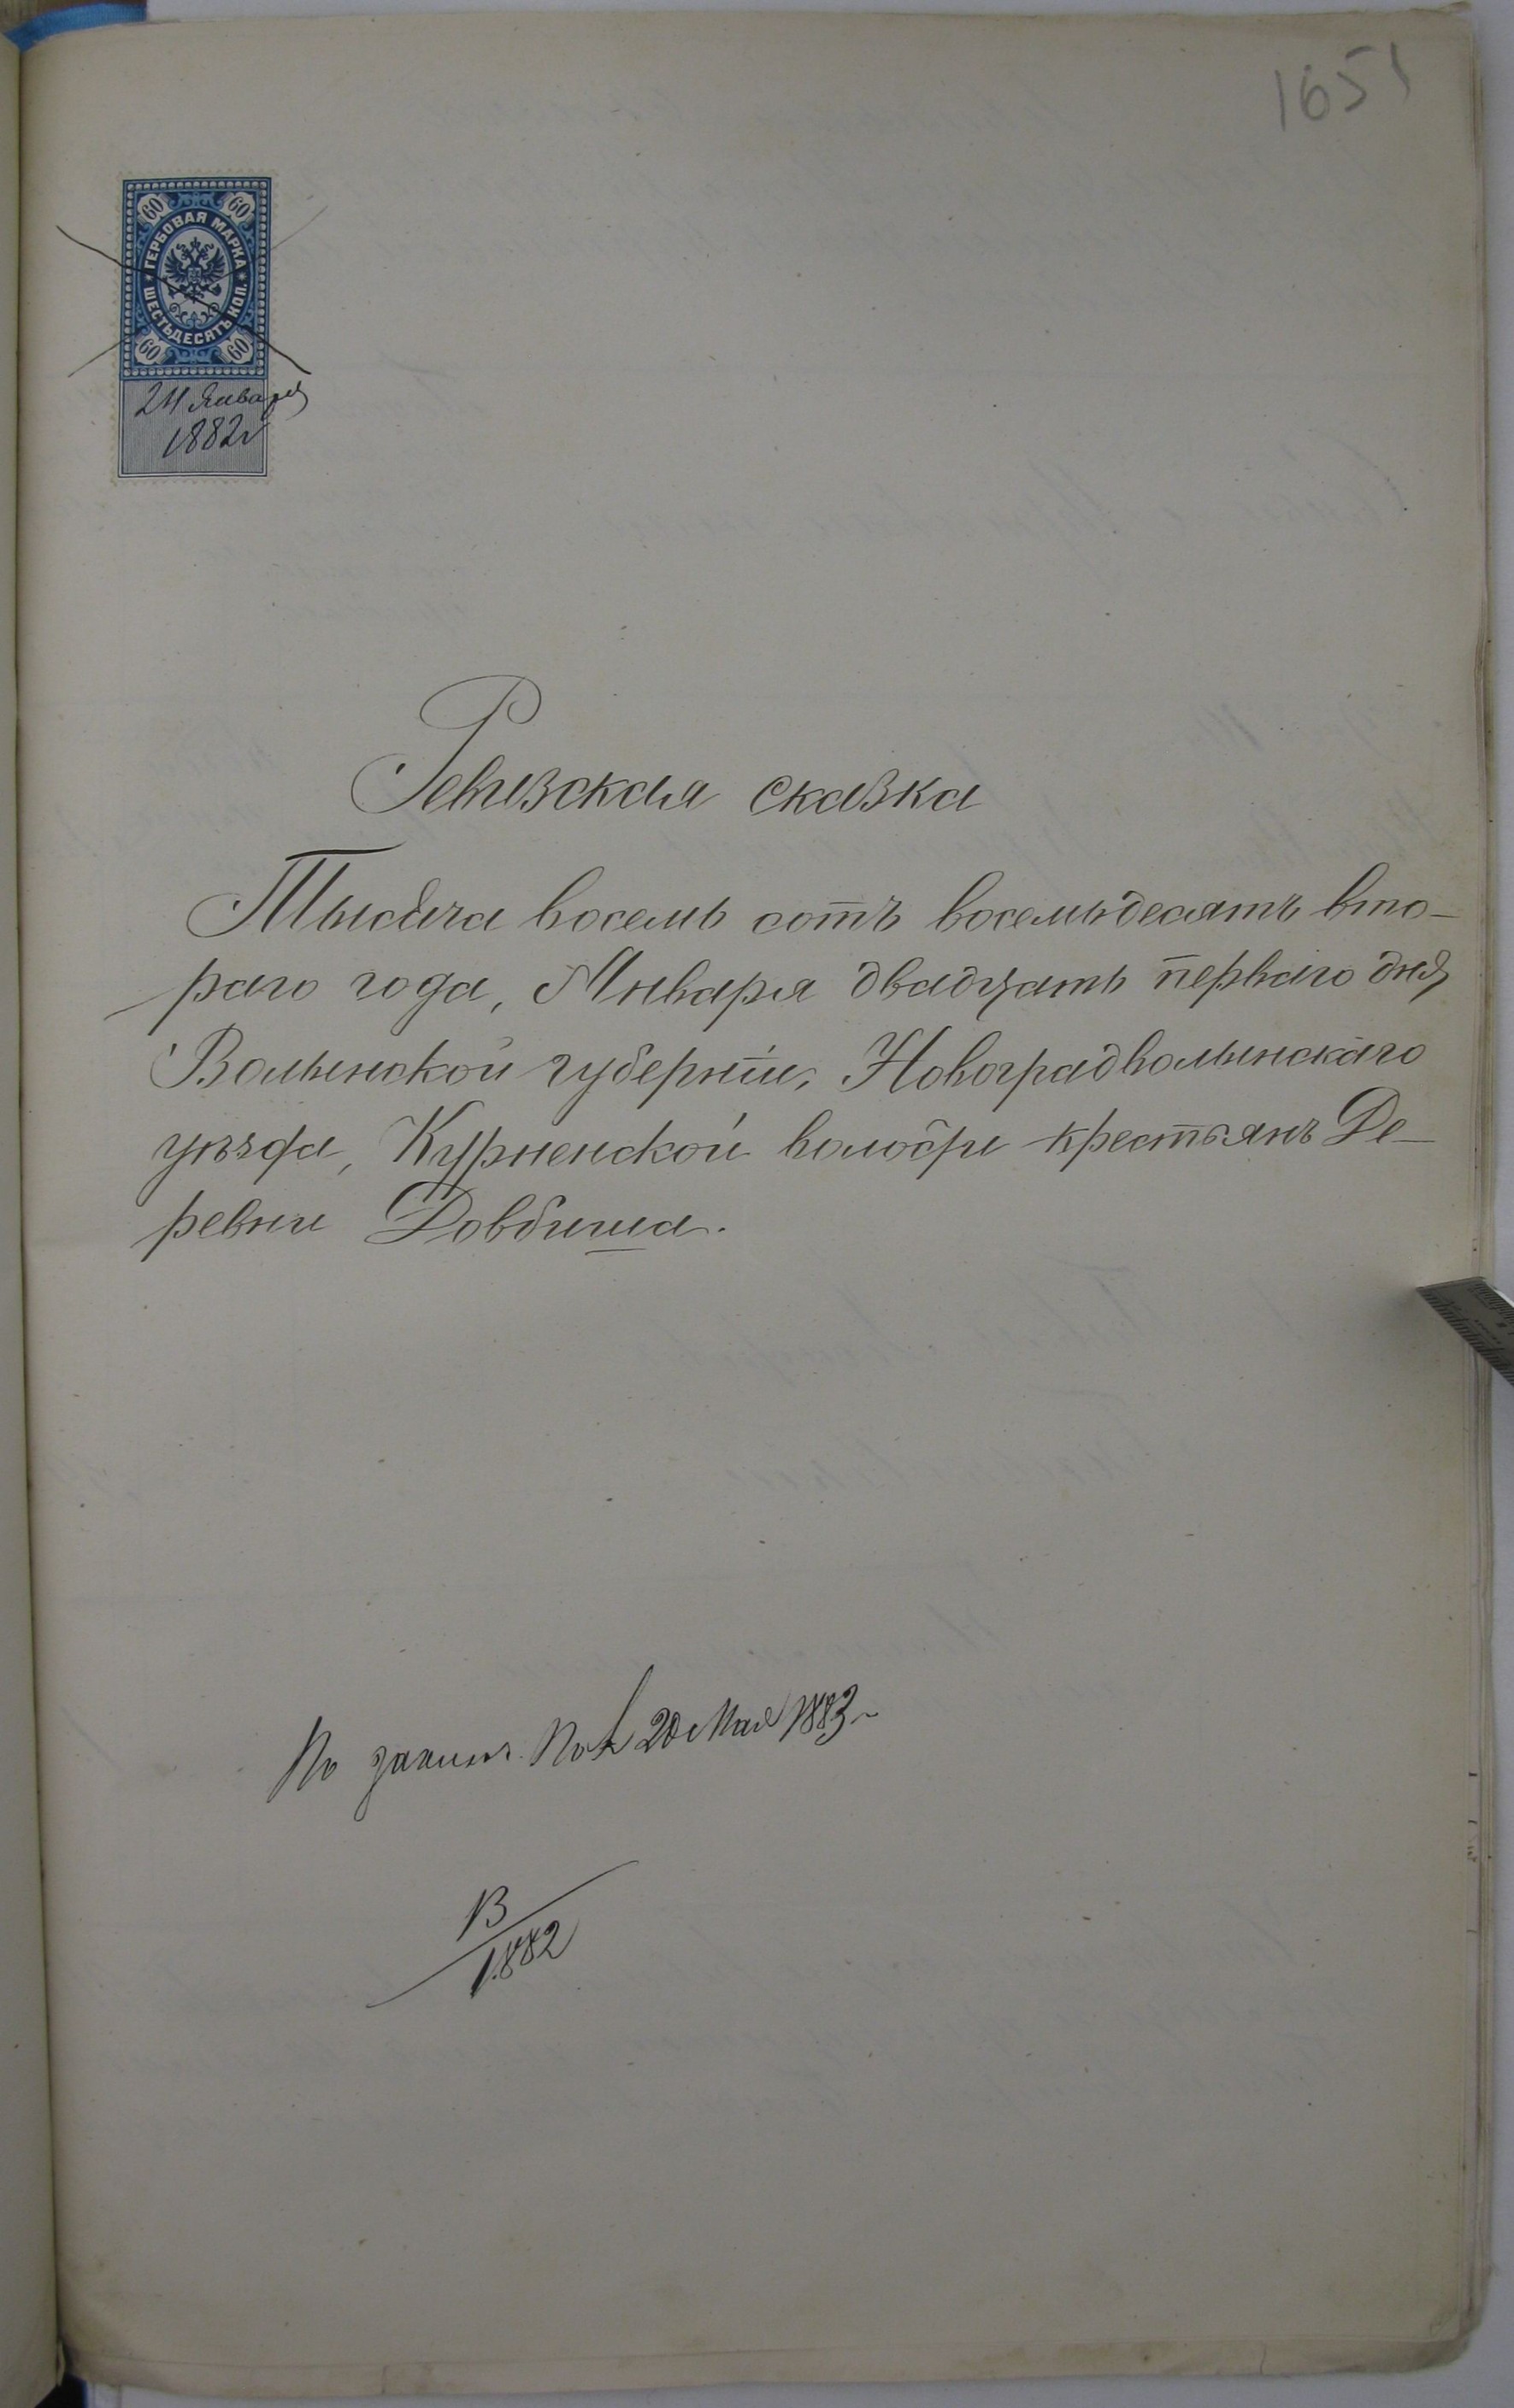 1651
60 60
ГЕРБОВАЯ МАРКА
ШЕСТЬДЕСЯТЪ КОП.
60 60
21 Января
1882 г
Ревизская сказка
Тысяча восемь сотъ восемьдесятъ вто-
раго года, Января двадцать перваго дня
Волынской губерніи, Новоградволынскаго
уѣзда, Курненской волости крестьянъ Де-
ревни Довбиша.
По 20 Мая 1883
13
1882